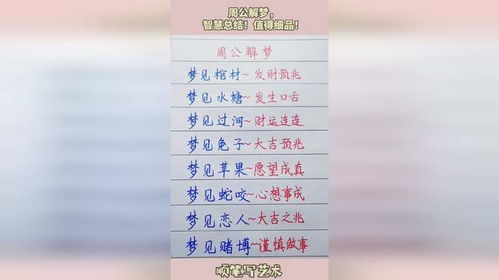 周公解梦，
智慧总结！值得细品！
周公解梦
梦见棺材~发财预兆
梦见水塘~发生口舌
梦见过河~财运连连
梦见兔子~大吉预兆
梦见苹果~愿望成真
梦见蛇咬~心想事成
梦见恋人~大吉之兆
梦见赌博~谨慎做事
顺笔写艺术